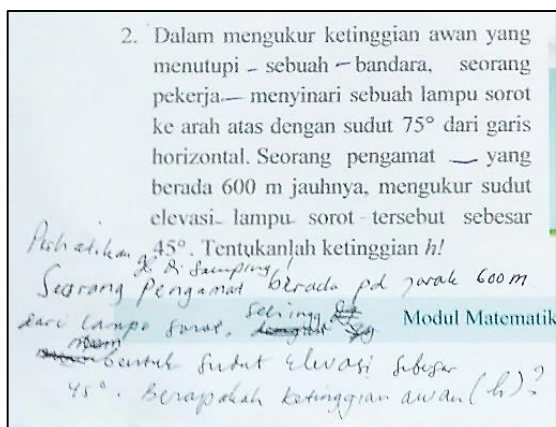 2. Dalam mengukur ketinggian awan yang
menutupi sebuah bandara, seorang
pekerja menyinari sebuah lampu sorot
ke arah atas dengan sudut 75° dari garis
horizontal. Seorang pengamat yang
berada 600 m jauhnya, mengukur sudut
elevasi lampu sorot tersebut sebesar
45°. Tentukanlah ketinggian h!
Perhatikan
di samping!
Seorang Pengamat berada pd jarak 600 m
dari lampu sorot,
Modul Matematik
bentuk sudut elevasi sebesar
45°. Berapakah ketinggian awan (h)?